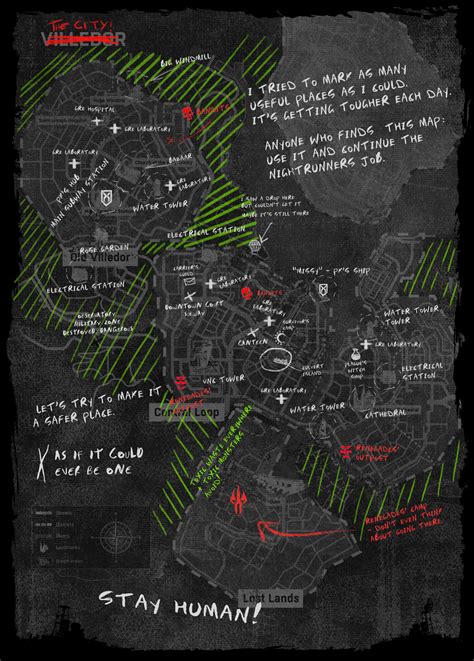 THE CITY!
VILLEDOR
BIG WINDMILL
I TRIED TO MARK AS MANY
USEFUL PLACES AS I COULD.
IT'S GETTING TOUGHER EACH DAY.
ANYONE WHO FINDS THIS MAP:
USE IT AND CONTINUE THE
NIGHTRUNNERS JOB.
GRE HOSPITAL
BANDITS
GRE LABORATORY
BAZAAR
GRE LABORATORY
PK'S HUB
MAIN SUBWAY STATION
WATER TOWER
I SAW A DROP HERE
BUT COULDN'T GET IT
MAYBE IT'S STILL THERE
ELECTRICAL STATION
ROSE GARDEN
Old Villedor
ELECTRICAL STATION
CARRIER'S
GUILD
GRE
LABORATORY
"MISSY" - PK'S SHIP
BANDITS
DOWNTOWN COURT
SUBWAY
OBSERVATORY
MILITARY ZONE
DESTROYED, DANGEROUS
GRE LABORATORY
SURVIVOR'S
CAMP
CANTEEN
WATER TOWER
GRE LABORATORY
VNC TOWER
CULVERT
ISLAND
ELECTRICAL
STATION
GRE
LABORATORY
WATER TOWER
CATHEDRAL
RENEGADES'
OUTPOST
LET'S TRY TO MAKE IT
A SAFER PLACE.
Central Loop
AS IF IT COULD
EVER BE ONE
TOXIC WASTE EVERYWHERE
TOXIC MONSTERS
AVOID!
RENEGADES'
OUTPOST
RENEGADES' CAMP
- DON'T EVEN THINK
ABOUT GOING THERE.
Lost Lands
STAY HUMAN!